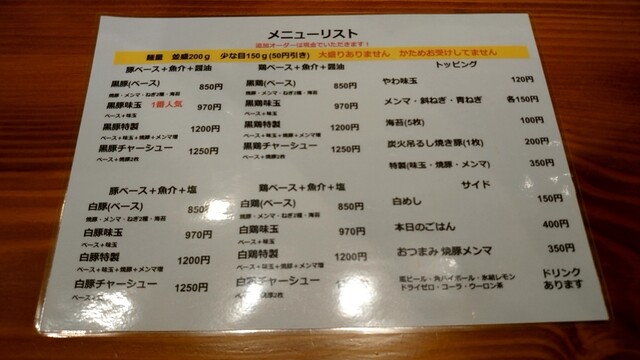 メニューリスト
追加オーダーは現金でいただきます！
麺量 並盛200g 少な目150g(50円引き) 大盛りありません かためお受けしてません
豚ベース＋魚介＋醤油
黒豚(ベース) 850円
焼豚・メンマ・ねぎ2種・海苔
黒豚味玉 1番人気 970円
ベース＋味玉
黒豚特製 1200円
ベース＋味玉＋焼豚＋メンマ増
黒豚チャーシュー 1250円
ベース＋焼豚2枚
鶏ベース＋魚介＋醤油
黒鶏(ベース) 850円
焼豚・メンマ・ねぎ2種・海苔
黒鶏味玉 970円
ベース＋味玉
黒鶏特製 1200円
ベース＋味玉＋焼豚＋メンマ増
黒鶏チャーシュー 1250円
ベース＋焼豚2枚
トッピング
やわ味玉 120円
メンマ・斜ねぎ・青ねぎ 各150円
海苔(5枚) 100円
炭火吊るし焼き豚(1枚) 200円
特製(味玉・焼豚・メンマ) 350円
豚ベース＋魚介＋塩
白豚(ベース) 850
焼豚・メンマ・ねぎ2種・海苔
白豚味玉 970円
ベース＋味玉
白豚特製 1200円
ベース＋味玉＋焼豚＋メンマ増
白豚チャーシュー 1250円
鶏ベース＋魚介＋塩
白鶏(ベース) 850円
焼豚・メンマ・ねぎ2種・海苔
白鶏味玉 970円
ベース＋味玉
白鶏特製 1200円
ベース＋味玉＋焼豚＋メンマ増
チャーシュー 1250円
焼豚2枚
サイド
白めし 150円
本日のごはん 400円
おつまみ 焼豚メンマ 350円
瓶ビール・角ハイボール・氷結レモン
ドライゼロ・コーラ・ウーロン茶
ドリンク
あります